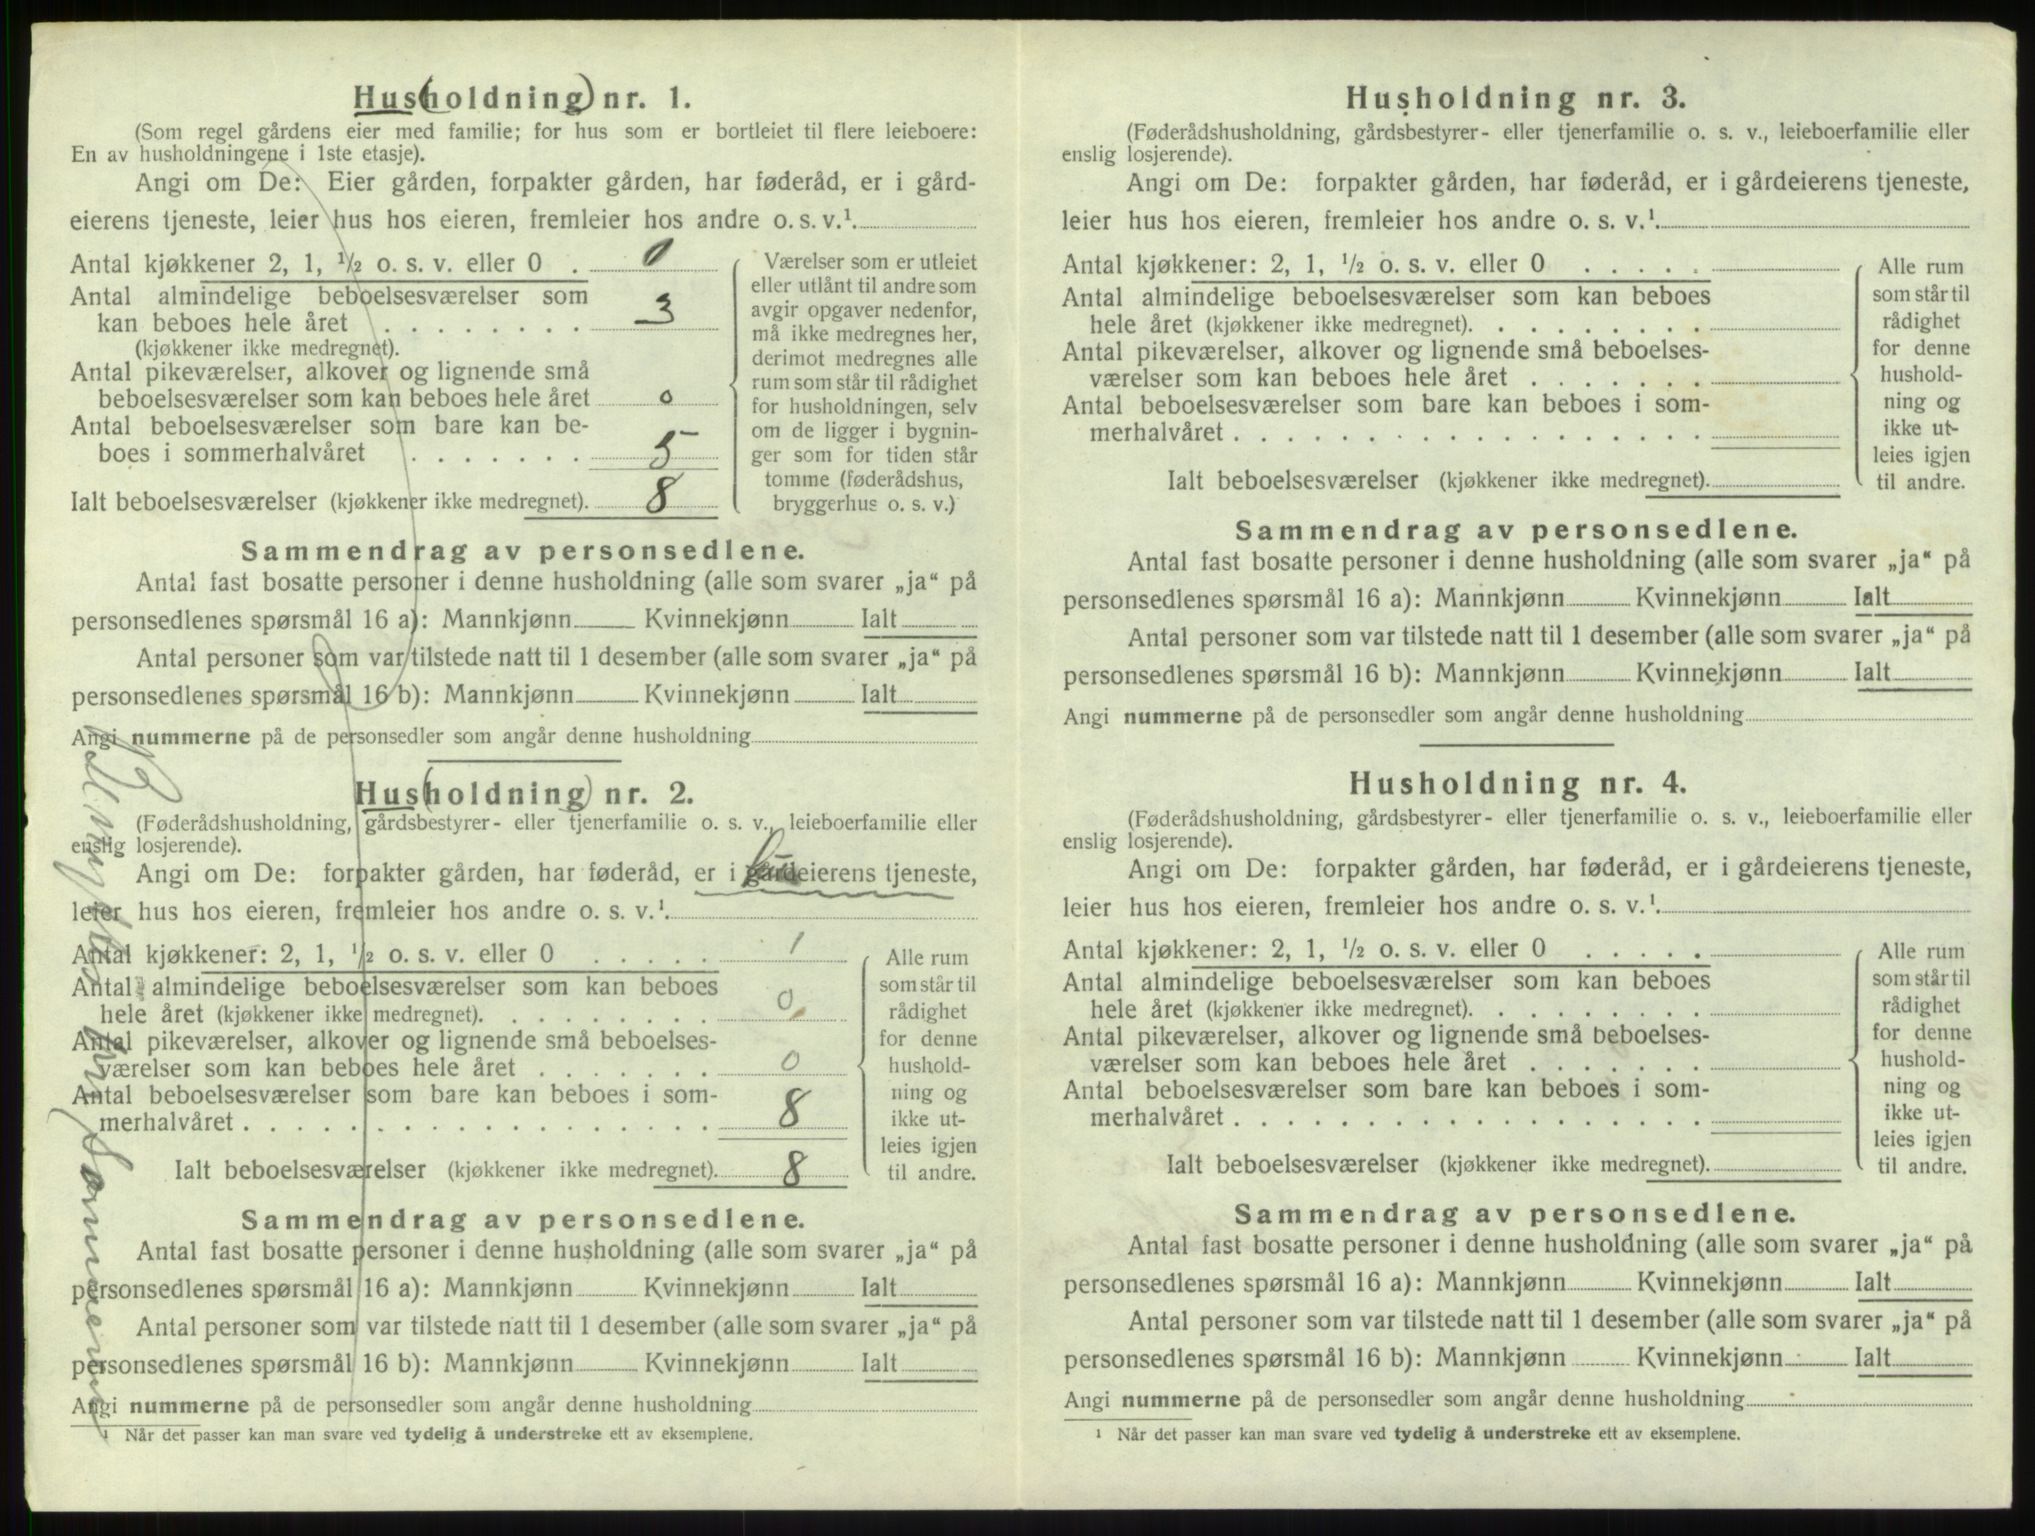 Hus(holdning) nr. 1.
(Som regel gårdens eier med familie; for hus som er bortleiet til flere leieboere:
En av husholdningene i 1ste etasje).
Angi om De: Eier gården, forpakter gården, har føderåd, er i gård-
eierens tjeneste, leier hus hos eieren, fremleier hos andre o. s. v.¹
Antal kjøkkener 2, 1, ½ o. s. v. eller 0 . 0
Antal almindelige beboelsesværelser som
kan beboes hele året . . . . . . . . 3
(kjøkkener ikke medregnet).
Antal pikeværelser, alkover og lignende små
beboelsesværelser som kan beboes hele året 0
Antal beboelsesværelser som bare kan be-
boes i sommerhalvåret . . . . . . . 5
Ialt beboelsesværelser (kjøkkener ikke medregnet). 8
Værelser som er utleiet
eller utlånt til andre som
avgir opgaver nedenfor,
må ikke medregnes her,
derimot medregnes alle
rum som står til rådighet
for husholdningen, selv
om de ligger i bygnin-
ger som for tiden står
tomme (føderådshus,
bryggerhus o. s. v.)
Sammendrag av personsedlene.
Antal fast bosatte personer i denne husholdning (alle som svarer „ja“ på
personsedlenes spørsmål 16 a): Mannkjønn Kvinnekjønn Ialt
Antal personer som var tilstede natt til 1 desember (alle som svarer „ja“ på
personsedlenes spørsmål 16 b): Mannkjønn Kvinnekjønn Ialt
Angi nummerne på de personsedler som angår denne husholdning
Hus(holdning) nr. 2.
(Føderådshusholdning, gårdsbestyrer- eller tjenerfamilie o. s. v., leieboerfamilie eller
enslig losjerende).
Angi om De: forpakter gården, har føderåd, er i gårdeierens tjeneste,
leier hus hos eieren, fremleier hos andre o. s. v.¹
Antal kjøkkener: 2, 1, ½ o. s. v. eller 0 . . . . . 1
Antal almindelige beboelsesværelser som kan beboes
hele året (kjøkkener ikke medregnet). . . . . . . . . 0
Antal pikeværelser, alkover og lignende små beboelses-
værelser som kan beboes hele året . . . . . . . 0
Antal beboelsesværelser som bare kan beboes i som-
merhalvåret . . . . . . . . . . . . . . . . . . 8
Ialt beboelsesværelser (kjøkkener ikke medregnet). 8
Alle rum
som står til
rådighet
for denne
hushold-
ning og
ikke ut-
leies igjen
til andre.
Sammendrag av personsedlene.
Antal fast bosatte personer i denne husholdning (alle som svarer „ja“ på
personsedlenes spørsmål 16 a): Mannkjønn Kvinnekjønn Ialt
Antal personer som var tilstede natt til 1 desember (alle som svarer „ja“ på
personsedlenes spørsmål 16 b): Mannkjønn Kvinnekjønn Ialt
Angi nummerne på de personsedler som angår denne husholdning
¹ Når det passer kan man svare ved tydelig å understreke ett av eksemplene.
Husholdning nr. 3.
(Føderådshusholdning, gårdsbestyrer- eller tjenerfamilie o. s. v., leieboerfamilie eller
enslig losjerende).
Angi om De: forpakter gården, har føderåd, er i gårdeierens tjeneste,
leier hus hos eieren, fremleier hos andre o. s. v.¹
Antal kjøkkener: 2, 1, ½ o. s. v. eller 0 . . . . .
Antal almindelige beboelsesværelser som kan beboes
hele året (kjøkkener ikke medregnet). . . . . . . . .
Antal pikeværelser, alkover og lignende små beboelses-
værelser som kan beboes hele året . . . . . . .
Antal beboelsesværelser som bare kan beboes i som-
merhalvåret . . . . . . . . . . . . . . . . . .
Ialt beboelsesværelser (kjøkkener ikke medregnet).
Alle rum
som står til
rådighet
for denne
hushold-
ning og
ikke ut-
leies igjen
til andre.
Sammendrag av personsedlene.
Antal fast bosatte personer i denne husholdning (alle som svarer „ja“ på
personsedlenes spørsmål 16 a): Mannkjønn Kvinnekjønn Ialt
Antal personer som var tilstede natt til 1 desember (alle som svarer „ja“ på
personsedlenes spørsmål 16 b): Mannkjønn Kvinnekjønn Ialt
Angi nummerne på de personsedler som angår denne husholdning
Husholdning nr. 4.
(Føderådshusholdning, gårdsbestyrer- eller tjenerfamilie o. s. v., leieboerfamilie eller
enslig losjerende).
Angi om De: forpakter gården, har føderåd, er i gårdeierens tjeneste,
leier hus hos eieren, fremleier hos andre o. s. v.¹
Antal kjøkkener: 2, 1, ½ o. s. v. eller 0 . . . . .
Antal almindelige beboelsesværelser som kan beboes
hele året (kjøkkener ikke medregnet). . . . . . . . .
Antal pikeværelser, alkover og lignende små beboelses-
værelser som kan beboes hele året . . . . . . .
Antal beboelsesværelser som bare kan beboes i som-
merhalvåret . . . . . . . . . . . . . . . . . .
Ialt beboelsesværelser (kjøkkener ikke medregnet).
Alle rum
som står til
rådighet
for denne
hushold-
ning og
ikke ut-
leies igjen
til andre.
Sammendrag av personsedlene.
Antal fast bosatte personer i denne husholdning (alle som svarer „ja“ på
personsedlenes spørsmål 16 a): Mannkjønn Kvinnekjønn Ialt
Antal personer som var tilstede natt til 1 desember (alle som svarer „ja“ på
personsedlenes spørsmål 16 b): Mannkjønn Kvinnekjønn Ialt
Angi nummerne på de personsedler som angår denne husholdning
¹ Når det passer kan man svare ved tydelig å understreke ett av eksemplene.